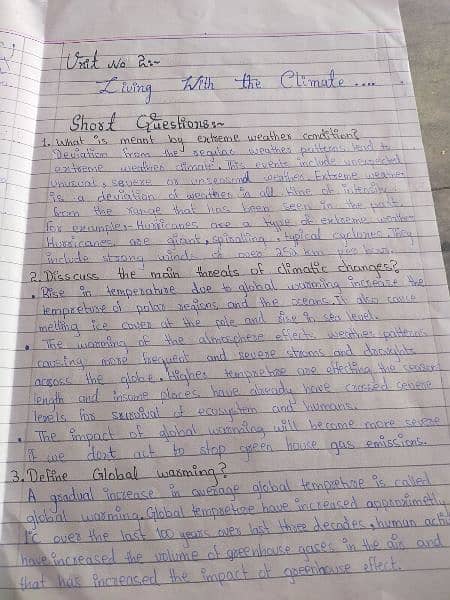 Unit No 2:-
Living With the Climate....
Short Questions:-
1. What is meant by extreme weather condition?
Deviation from the regular weather patterns tend to
extreme weather climate. This events include unexpected
unusual, severe or unseasonal weather. Extreme weather
is a deviation of weather in all kine of intensity
from the range that has been seen in the past.
for example:- Hurricanes are a type of extreme weather
Hurricanes are giant, spiralling, typical cyclones. They
include strong winds of over 250 km per hour.
2. Disscuss the main threats of climatic changes?
• Rise in temperature due to global warming increase the
tempreture of polar regions and the oceans. It also cause
melting ice cover at the pole and rise in sea level.
• The warming of the atmosphere effects weather patterns
causing more frequent and severe stroms and droughts
across the globe. Higher tempretre are effecting the season
length and insome places have already have crossed severe
levels for survival of ecosystem and humans.
• The impact of global warming will become more severe
if we dont act to stop green house gas emissions.
3. Define Global warming?
A gradual increase in average global tempretre is called
global warming. Global tempretre have increased approximitly
1°C over the last 100 years. over last three decades, human acti
have increased the volume of greenhouse gases in the air and
that has increased the impact of greenhouse effect.